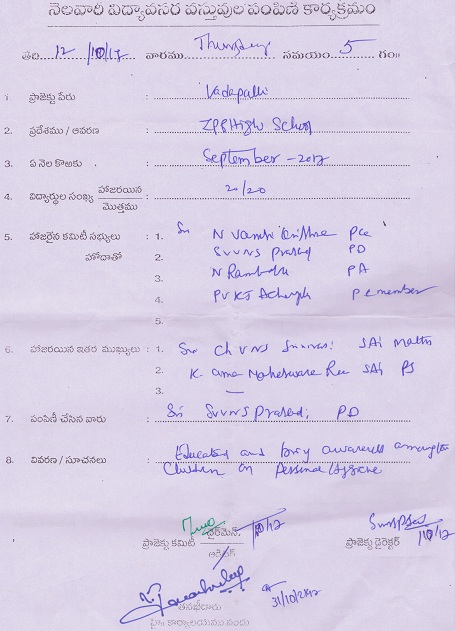 నెలవారి విద్యావసర వస్తువుల పంపిణి కార్యక్రమం
తేది. 12/10/17 వారము Thursday సమయం 5 గం॥
1. ప్రాజెక్టు పేరు : Vadapalli
2. ప్రదేశము / ఆవరణ : ZPP High School
3. ఏ నెల కొఱకు : September - 2017
4. విద్యార్థుల సంఖ్య హాజరయిన / మొత్తము : 20/20
5. హాజరైన కమిటీ సభ్యులు : 1. Sri N Vamsi Krishna
హోదాతో 2. SVVNS Prasad PD
3. N Rambabu PA
4. PVKS Acharyulu P C member
5.
6. హాజరయిన ఇతర ముఖ్యులు : 1. Sri Ch V N S Srinivas: SA: Maths
2. K. Uma Maheswara Rao SA: PS
3. —
7. పంపిణీ చేసిన వారు : Sri SVVNS Prasad, PD
8. వివరణ / సూచనలు : Education and awareness
Children on Personal Hygiene
ప్రాజెక్టు కమిటి ఛైర్మెన్. ప్రాజెక్టు డైరెక్టర్
ఆడిటర్
31/10/2017
తనిఖీదారు
హిం కార్యాలయము నందు